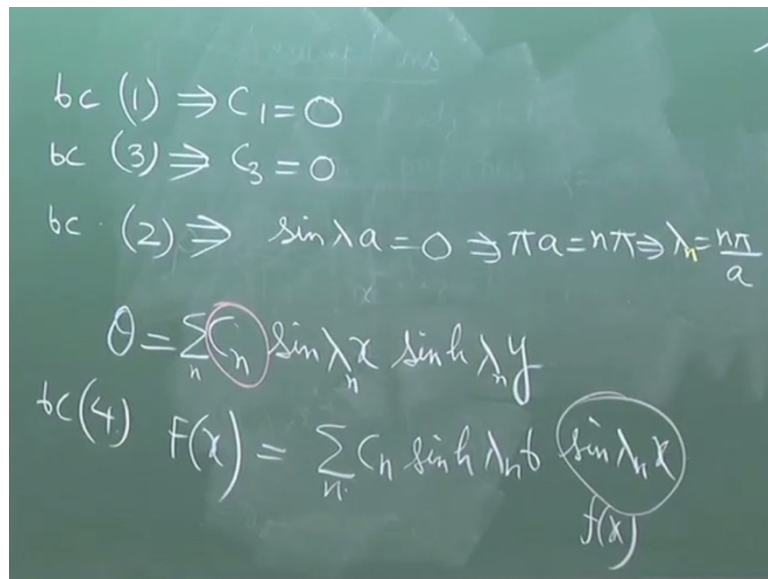 bc (1) ⇒ C₁ = 0
bc (3) ⇒ C₃ = 0
bc (2) ⇒ sin λa = 0 ⇒ πa = nπ ⇒ λₙ = nπ/a
θ = ∑ₙ Cₙ sin λₙx sinh λₙy
bc (4) F(x) = ∑ₙ Cₙ sinh λₙb sin λₙx
f(x)